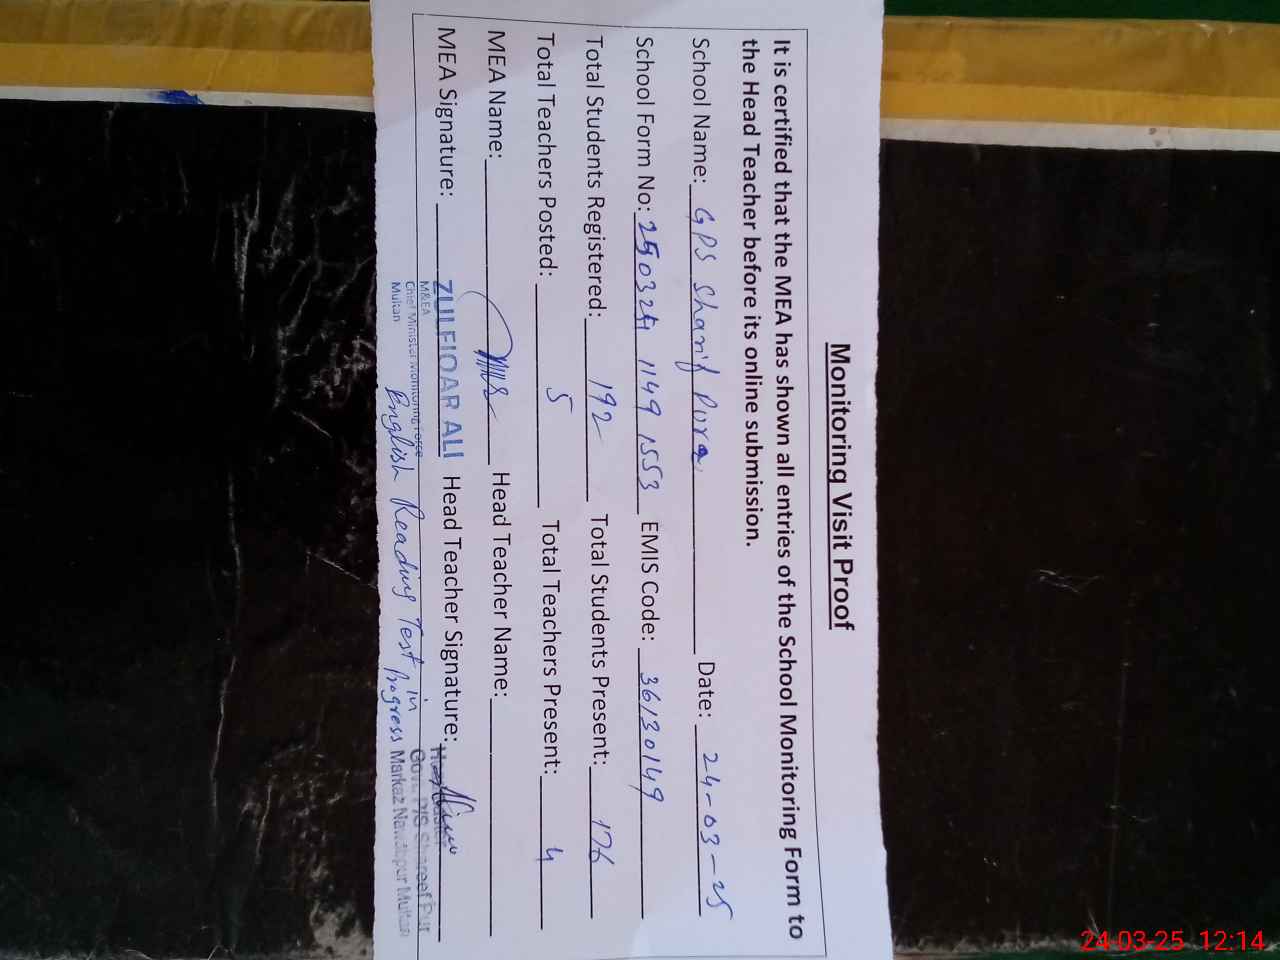 Monitoring Visit Proof
It is certified that the MEA has shown all entries of the School Monitoring Form to
the Head Teacher before its online submission.
School Name: GPS Sharif Pura Date: 24-03-25
School Form No: 250324 1149 1553 EMIS Code: 36130149
Total Students Registered: 192 Total Students Present: 176
Total Teachers Posted: 5 Total Teachers Present: 4
MEA Name: Head Teacher Name:
MEA Signature: ZULFIQAR ALI Head Teacher Signature:
M&EA
Chief Minister Monitoring Force
Multan
English Reading Test in Progress
Govt. P/S Shareef Pur
Markaz Nawabpur Multan
24-03-25 12:14